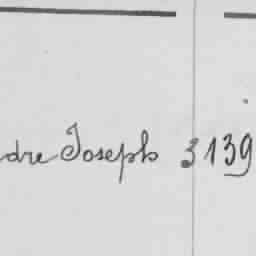 dre Joseph 3139